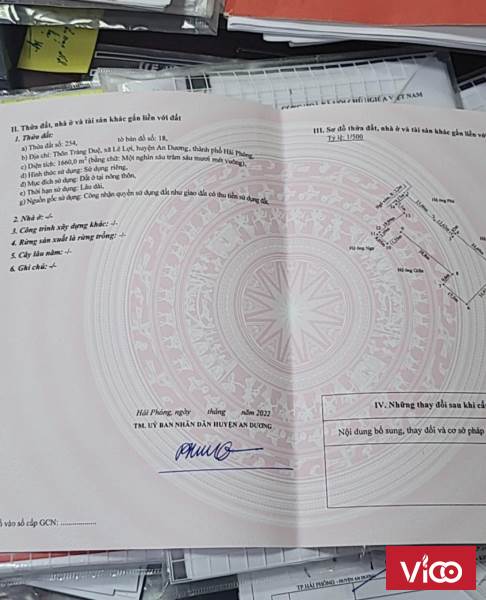 II. Thửa đất, nhà ở và tài sản khác gắn liền với đất
1. Thửa đất:
a) Thửa đất số: 254, tờ bản đồ số: 18,
b) Địa chỉ: Thôn Tràng Duệ, xã Lê Lợi, huyện An Dương, thành phố Hải Phòng,
c) Diện tích: 1660,0 m² (bằng chữ: Một nghìn sáu trăm sáu mươi mét vuông),
d) Hình thức sử dụng: Sử dụng riêng,
đ) Mục đích sử dụng: Đất ở tại nông thôn,
e) Thời hạn sử dụng: Lâu dài,
g) Nguồn gốc sử dụng: Công nhận quyền sử dụng đất như giao đất có thu tiền sử dụng đất.
2. Nhà ở: -/-
3. Công trình xây dựng khác: -/-
4. Rừng sản xuất là rừng trồng: -/-
5. Cây lâu năm: -/-
6. Ghi chú: -/-
Hải Phòng, ngày tháng năm 2022
TM. UỶ BAN NHÂN DÂN HUYỆN AN DƯƠNG
vào sổ cấp GCN:
III. Sơ đồ thửa đất, nhà ở và tài sản khác gắn liền với
Tỷ lệ: 1/500
Hộ ông Phú
Hộ ông Ngự
Hộ ông Giện
IV. Những thay đổi sau khi cấ
Nội dung bổ sung, thay đổi và cơ sở pháp
TP HẢI PHÒNG - HUYỆN AN DƯƠNG
VICO